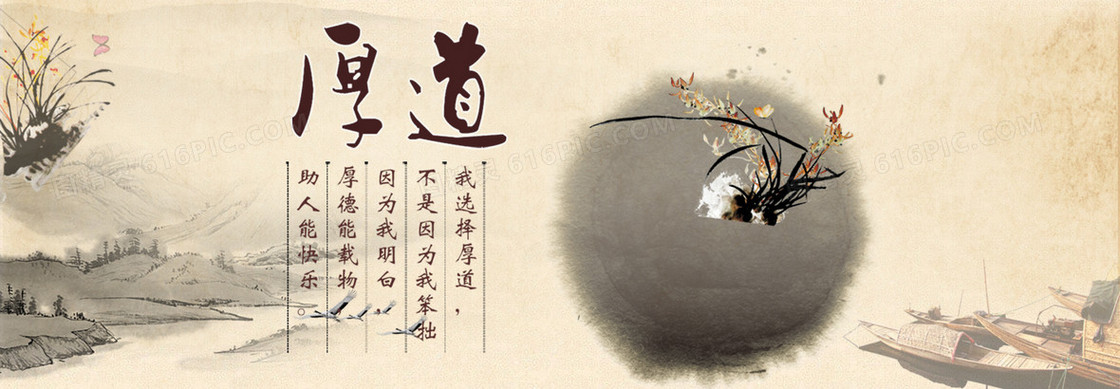 厚道
我选择厚道，
不是因为我笨拙
因为我明白
厚德能载物
助人能快乐。
616PIC.COM